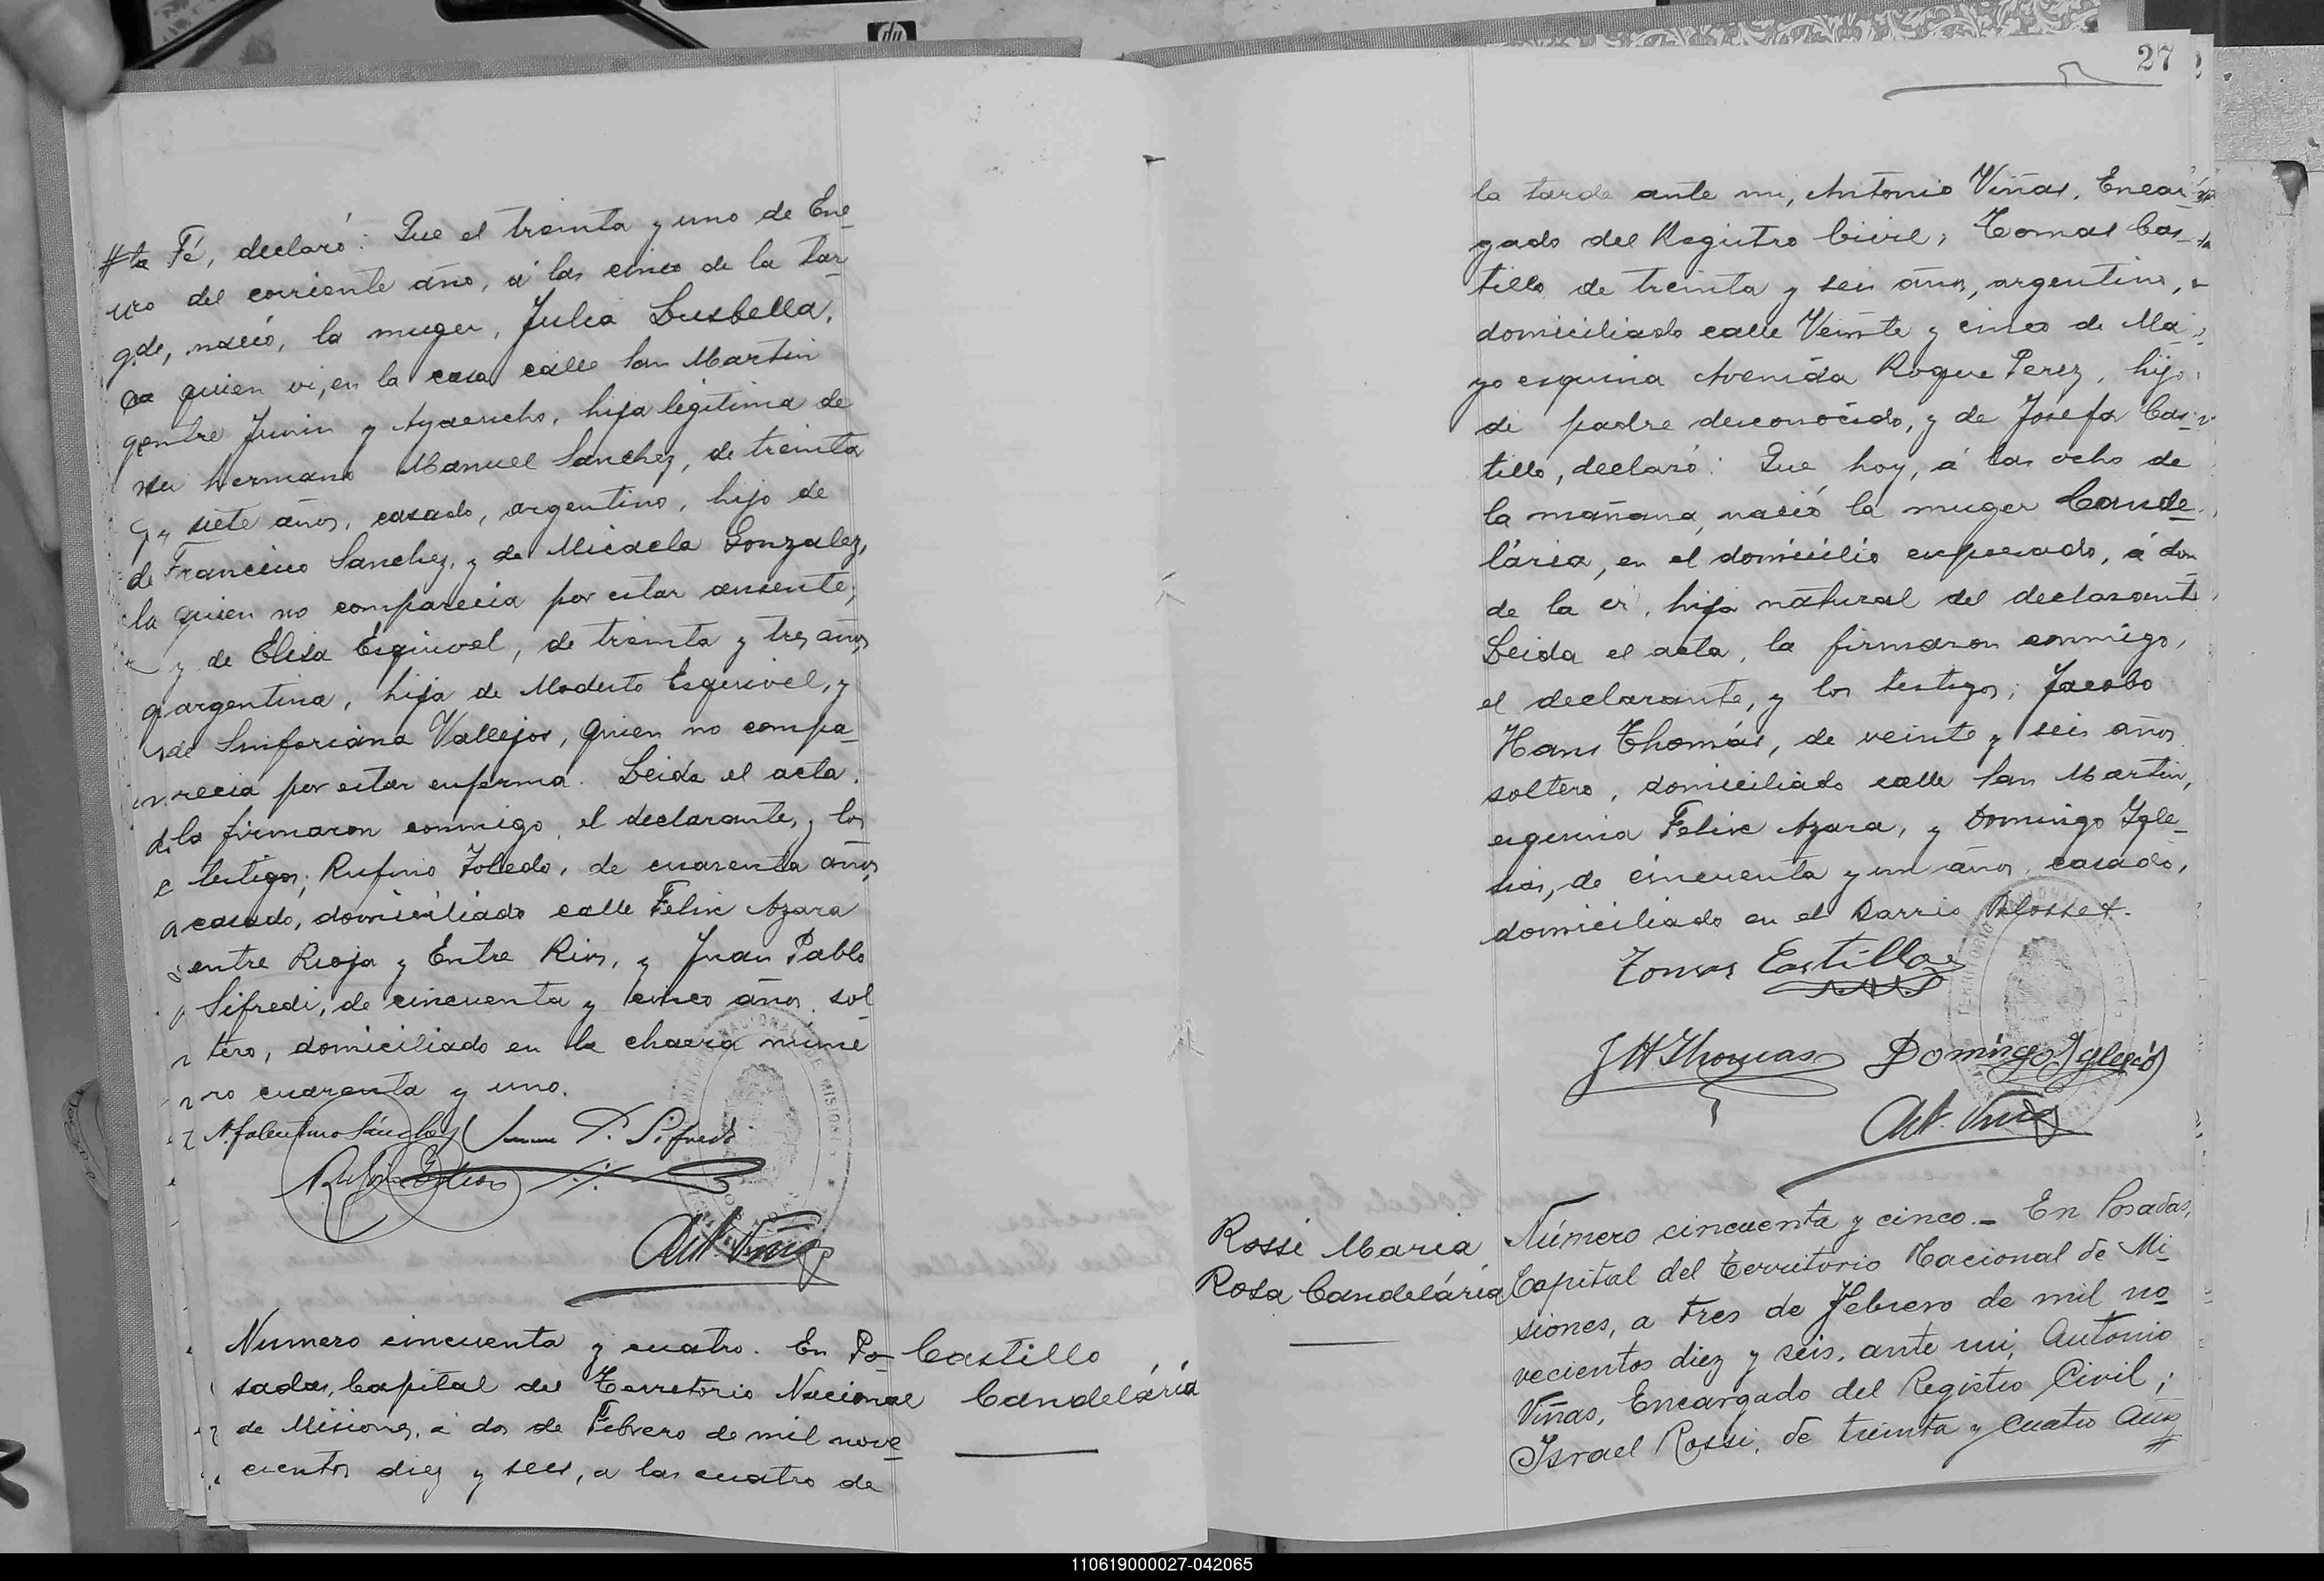 ta Fé, declaró: Que el treinta y uno de Ene-
ro del corriente año, á las cinco de la tar
de, nació, la muger, Julia Lusbella,
a quien vi, en la casa calle San Martin
entre Junin y Ayacucho, hija legitima de
su hermano Manuel Sanchez, de treinta
y siete años, casado, argentino, hijo de
Francisco Sanchez, y de Micaela Gonzalez,
quien no comparecia por estar ausente,
y de Elisa Esquivel, de treinta y tres años
argentina, hija de Modesto Esquivel, y
de Sinforiana Vallejos, quien no compa-
recia por estar enferma. Leida el acta,
la firmaron conmigo, el declarante, y los
testigos; Rufino Toledo, de cuarenta años,
casado, domiciliado calle Felix Azara
entre Rioja y Entre Rios, y Juan Pablo
Sifredi, de cincuenta y cinco años, sol-
tero, domiciliado en la chacra nume
ro cuarenta y uno.
Juan P. Sifredi
Ant. Viñas
Numero cincuenta y cuatro. En Po-
sadas, Capital del Territorio Nacional
de Misiones, á dos de Febrero de mil nove-
cientos diez y seis, a las cuatro de
Castillo
Candelária
27
la tarde ante mi, Antonio Viñas, Encar-
gado del Registro Civil, Tomas Cas-
tillo de treinta y seis años, argentino,
domiciliado calle Veinte y cinco de Ma
yo esquina Avenida Roque Perez, hijo
de padre desconocido, y de Josefa Cas-
tillo, declaró: Que hoy, á las ocho de
la mañana, nació la muger Cande-
lária, en el domicilio expresado, á don
de la vi, hija natural del declarante
Leida el acta, la firmaron conmigo,
el declarante, y los testigos; Jacobo
Hans Thomás, de veinte y seis años
soltero, domiciliado calle San Martin,
esquina Felix Azara, y Domingo Igle-
sias, de cincuenta y un años, casado,
domiciliado en el Barrio Blosset.
Tomas Castillo
J H Thomas Domingo Iglesias
Ant. Viñas
Rossi Maria
Rosa Candelária
Número cincuenta y cinco.- En Posadas,
Capital del Territorio Nacional de Mi-
siones, a tres de Febrero de mil no-
vecientos diez y seis, ante mi, Antonio
Viñas, Encargado del Registro Civil;
Israel Rossi, de treinta y cuatro años
110619000027-042065